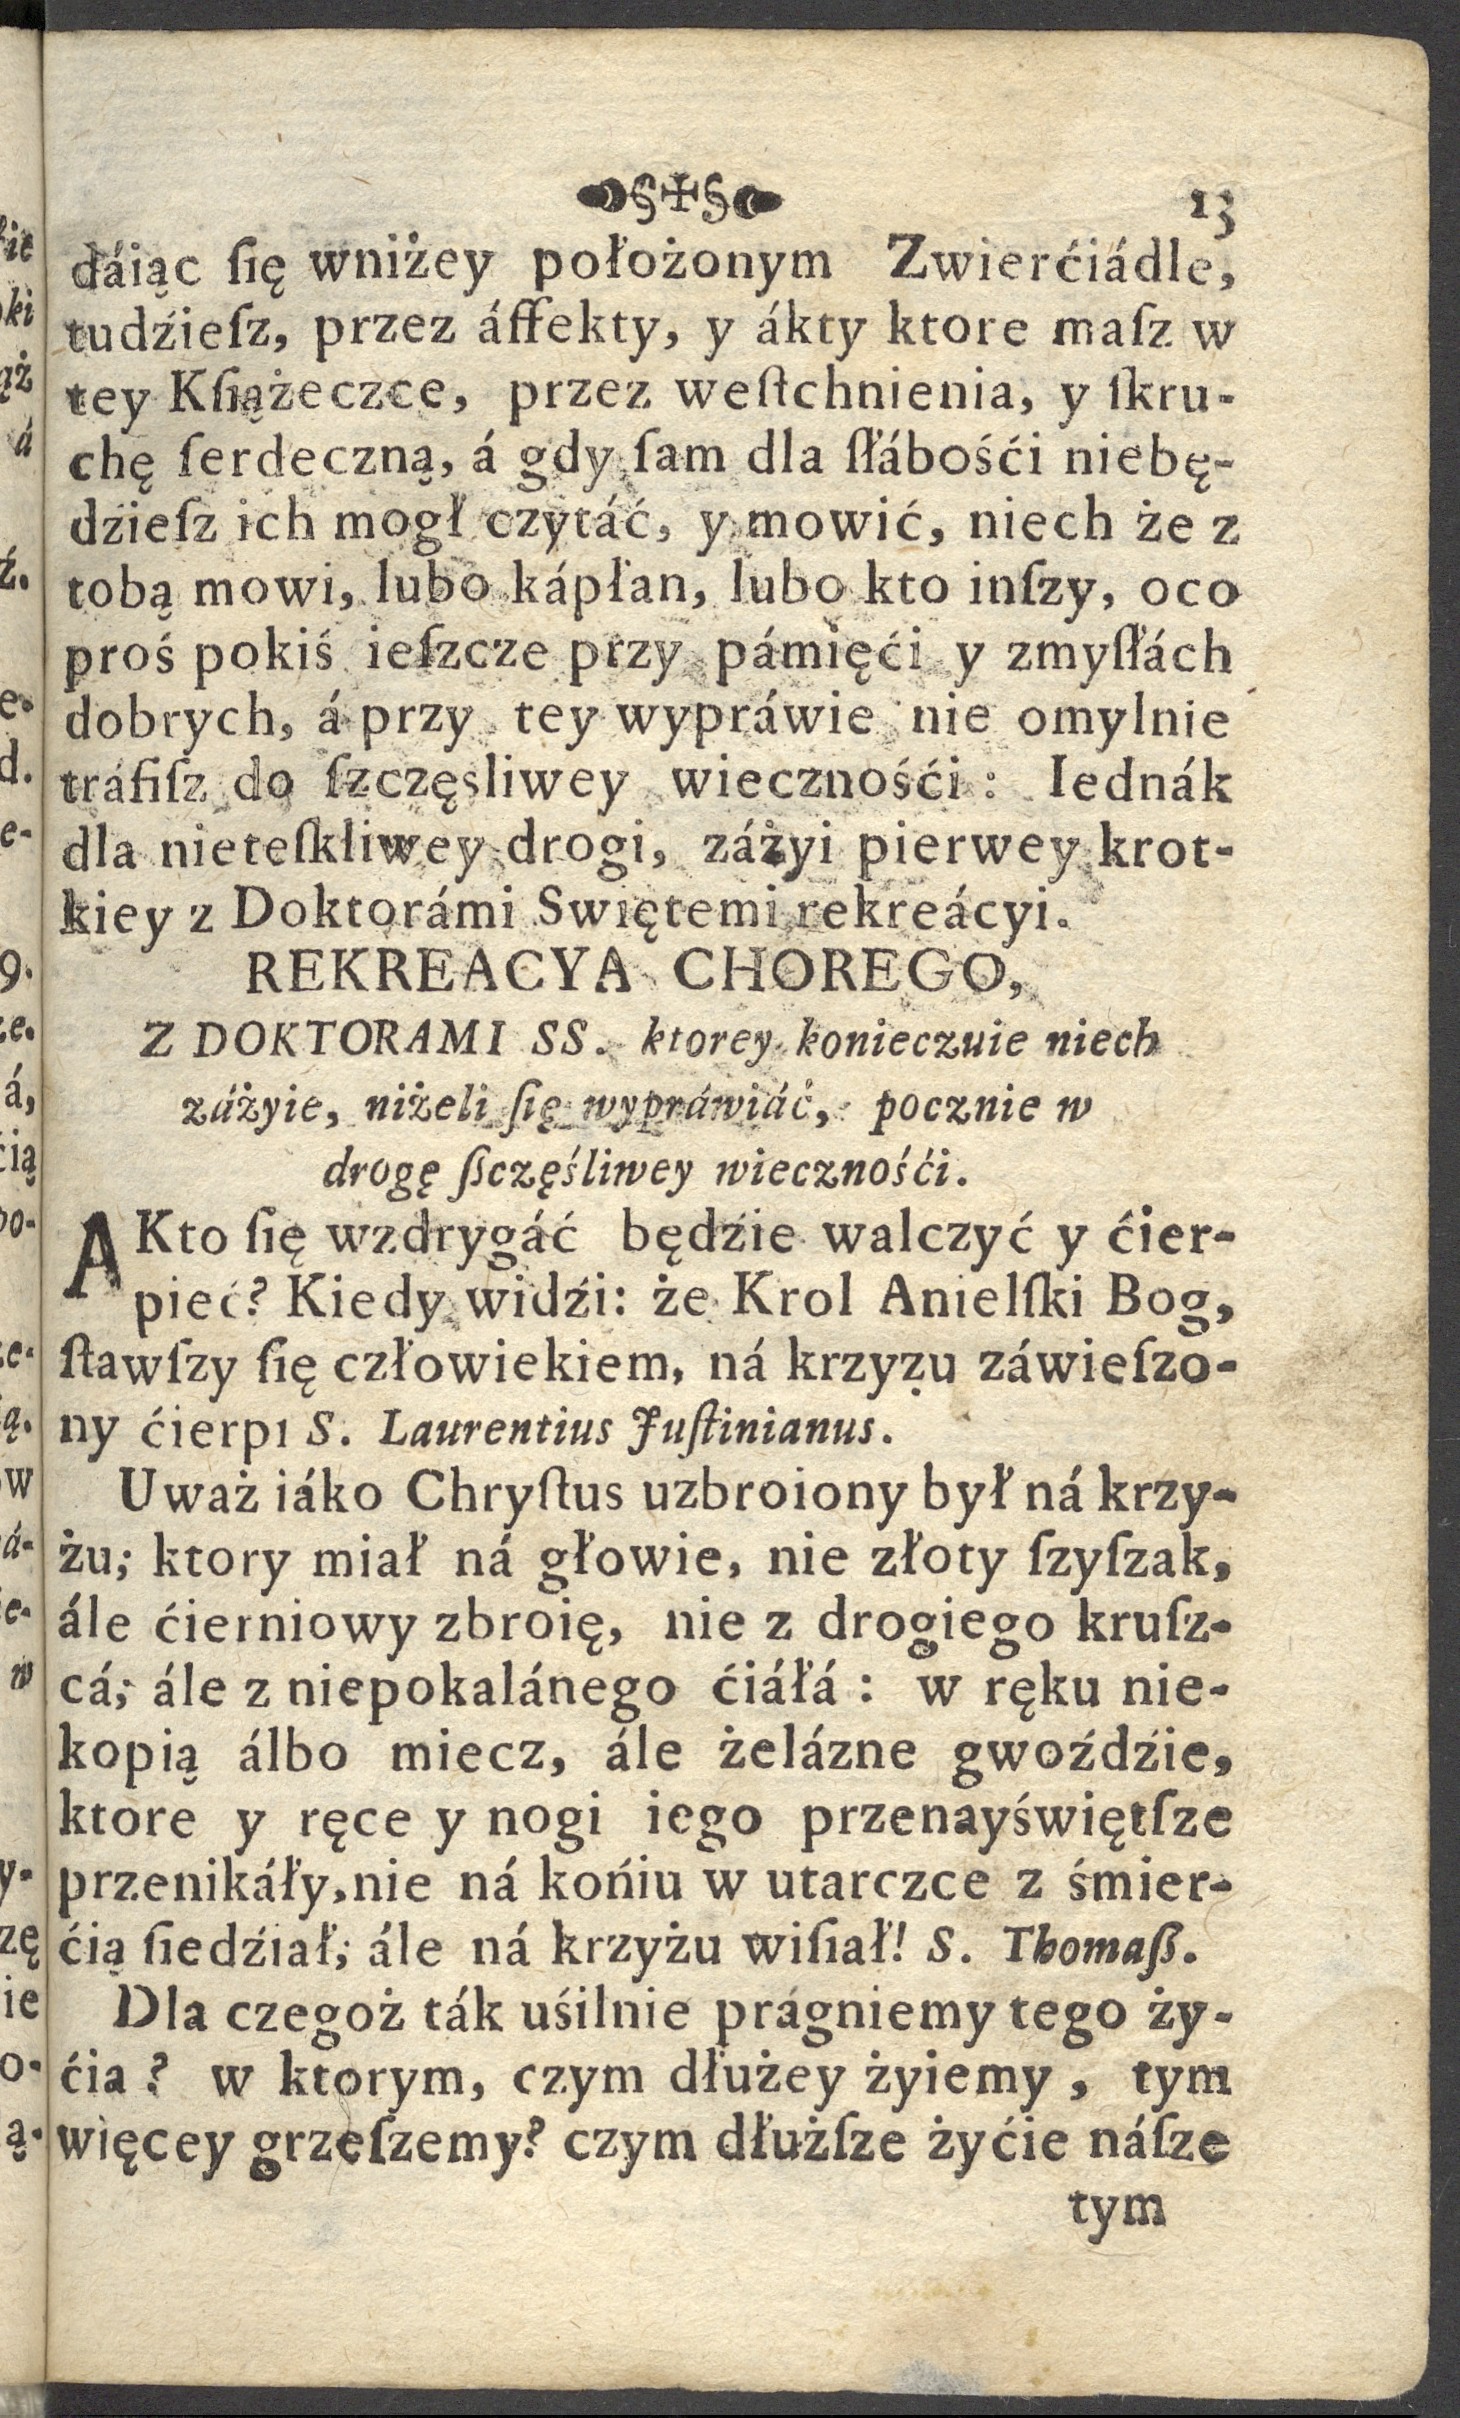 §✠§ 13
dáiąc ſię wniżey położonym Zwierćiádle,
tudźieſz, przez áffekty, y ákty ktore maſz w
tey Kſiążeczce, przez weſtchnienia, y ſkru-
chę ſerdeczną, á gdy ſam dla ſłábośći niebę-
dźieſz ich mogł czytáć, y mowić, niech że z
tobą mowi, lubo kápłan, lubo kto inſzy, oco
proś pokiś ieſzcze przy pámięći y zmyſłách
dobrych, á przy tey wypráwie nie omylnie
tráfiſz do ſzczęsliwey wiecznośći: Iednák
dla nieteſkliwey drogi, záżyi pierwey krot-
kiey z Doktorámi Swiętemi rekreácyi.
REKREACYA CHOREGO,
Z DOKTORAMI SS. ktorey konieczuie niech
záżyie, niżeli ſię wypráwiáć, pocznie w
drogę ßczęśliwey wiecznośći.
A Kto ſię wzdrygáć będźie walczyć y ćier-
pieć? Kiedy widźi: że Krol Anielſki Bog,
ſtawſzy ſię człowiekiem, ná krzyżu záwieſzo-
ny ćierpi S. Laurentius Juſtinianus.
Uważ iáko Chryſtus uzbroiony był ná krzy-
żu; ktory miał ná głowie, nie złoty ſzyſzak,
ále ćierniowy zbroię, nie z drogiego kruſz-
cá; ále z niepokalánego ćiáłá: w ręku nie-
kopią álbo miecz, ále żelázne gwoźdźie,
ktore y ręce y nogi iego przenayświętſze
przenikáły, nie ná końiu w utarczce z śmier-
ćią ſiedźiał; ále ná krzyżu wiſiał! S. Thomaß.
Dla czegoż ták uśilnie prágniemy tego ży-
ćia? w ktorym, czym dłużey żyiemy, tym
więcey grzeſzemy? czym dłużſze żyćie náſze
tym